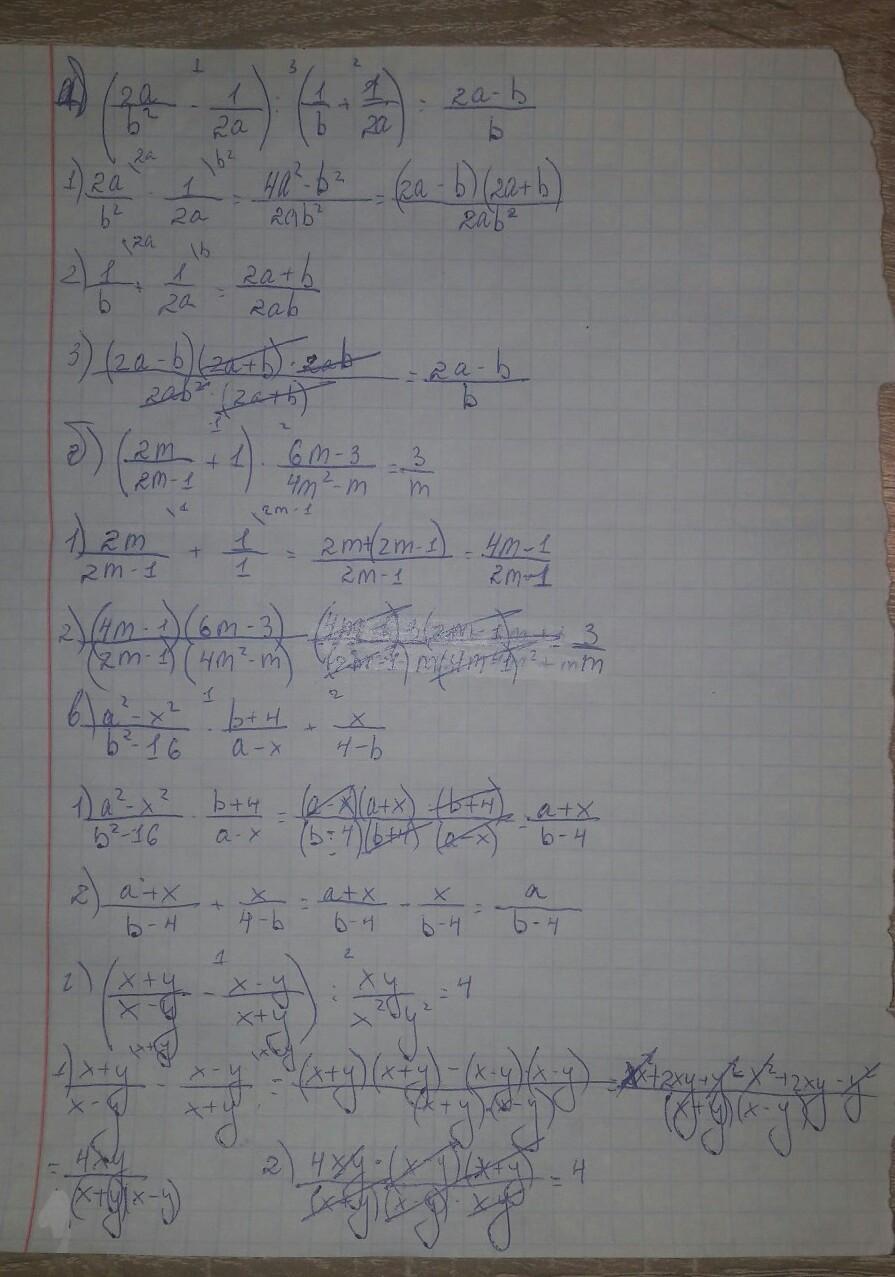 а) (2a/b² - 1/2a) : (1/b + 1/2a) = (2a-b)/b
1) 2a/b² - 1/2a = (4a²-b²)/2ab² = (2a-b)(2a+b)/2ab²
2) 1/b + 1/2a = (2a+b)/2ab
3) (2a-b)(2a+b)·2ab/2ab²·(2a+b) = (2a-b)/b
б) (2m/(2m-1) + 1) · (6m-3)/(4m²-m) = 3/m
1) 2m/(2m-1) + 1/1 = (2m+(2m-1))/(2m-1) = (4m-1)/(2m-1)
2) (4m-1)(6m-3)/(2m-1)(4m²-m) = (4m-1)3(2m-1)/(2m-1)m(4m-1) = 3/m
в) (a²-x²)/(b²-16) · (b+4)/(a-x) + x/(4-b)
1) (a²-x²)/(b²-16) · (b+4)/(a-x) = (a-x)(a+x)·(b+4)/(b-4)(b+4)(a-x) = (a+x)/(b-4)
2) (a+x)/(b-4) + x/(4-b) = (a+x)/(b-4) - x/(b-4) = a/(b-4)
г) ((x+y)/(x-y) - (x-y)/(x+y)) : xy/(x²-y²) = 4
1) (x+y)/(x-y) - (x-y)/(x+y) = ((x+y)(x+y)-(x-y)(x-y))/(x+y)(x-y) = (x²+2xy+y²-x²+2xy-y²)/(x+y)(x-y)
= 4xy/(x+y)(x-y) 2) 4xy·(x-y)(x+y)/(x+y)(x-y)·xy = 4